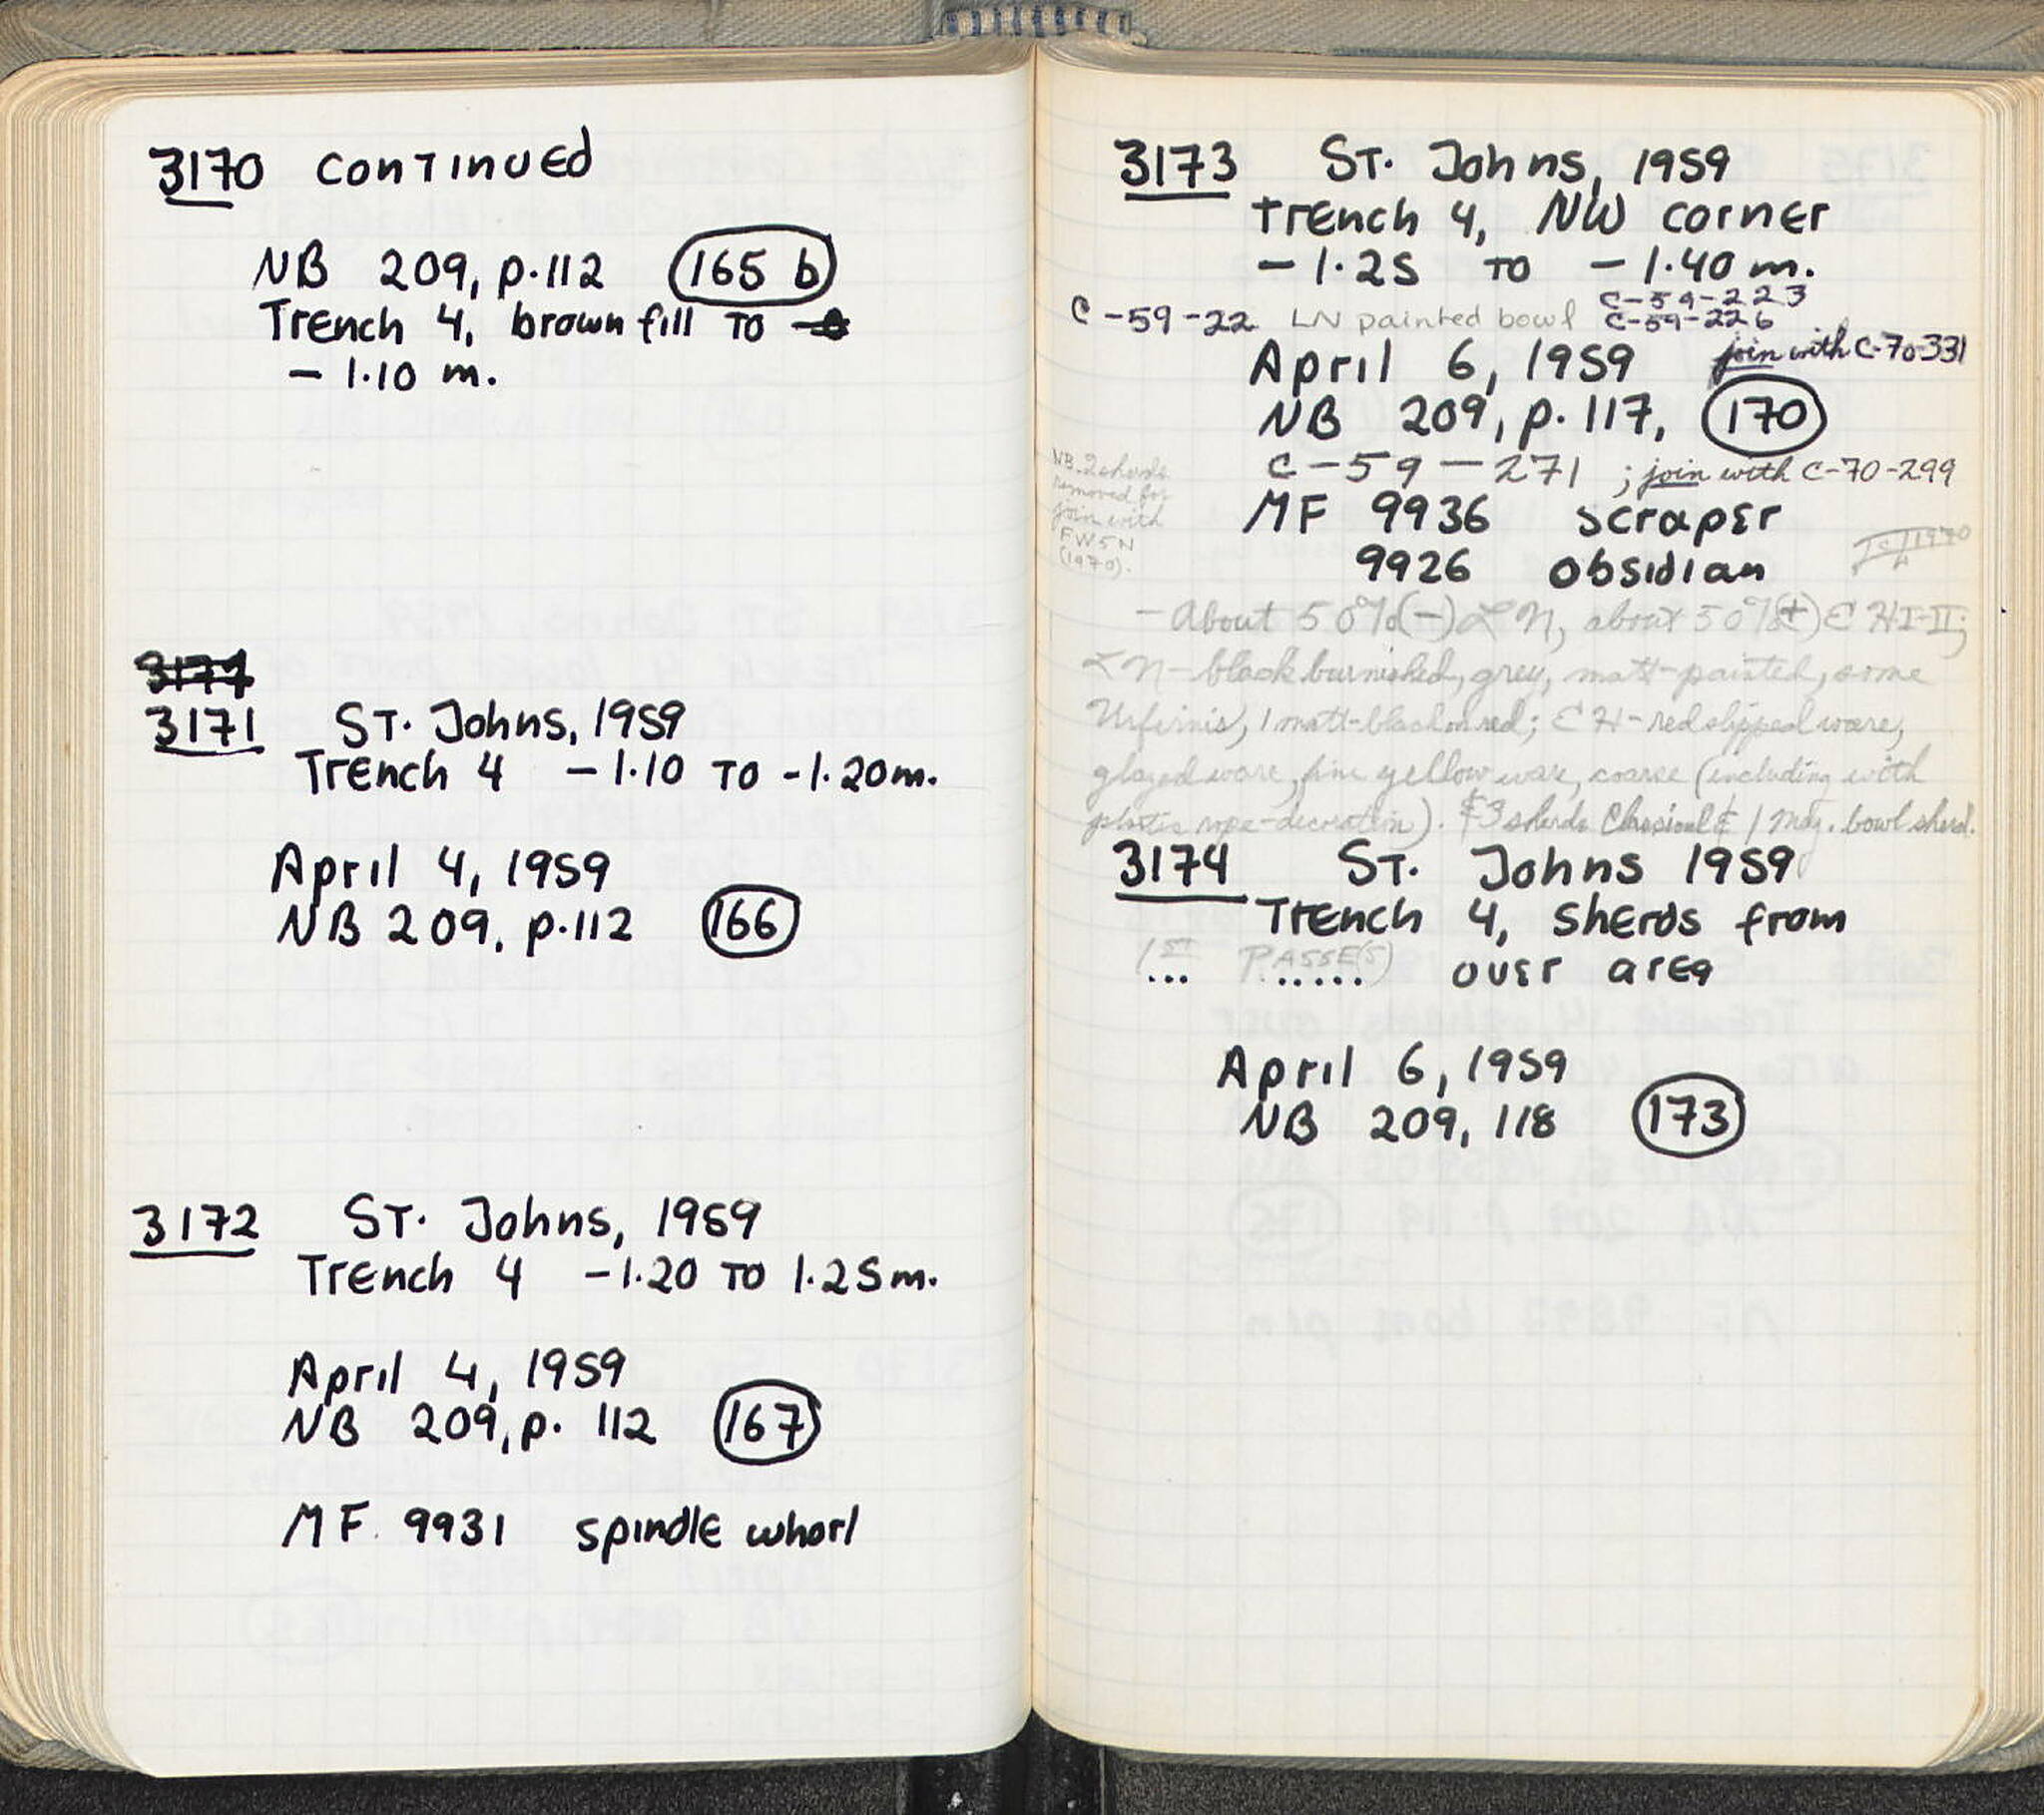 3170 continued
NB 209, p.112 165 b
Trench 4, brown fill to
- 1.10 m.
3171 St. Johns, 1959
Trench 4 -1.10 to -1.20m.
April 4, 1959
NB 209, p.112 166
3172 St. Johns, 1959
Trench 4 -1.20 to 1.25m.
April 4, 1959
NB 209, p. 112 167
MF 9931 spindle whorl
3173 St. Johns, 1959
trench 4, NW corner
- 1.25 to - 1.40 m.
C-59-223
C-59-22 LN painted bowl C-59-226
April 6, 1959 join with C-70-331
NB 209, p. 117, 170
C-59-271 ; join with C-70-299
NB. 2 sherds
removed for
join with
FW5N
(1970).
MF 9936 scraper
9926 obsidian
1970
- About 50%(-) LN, about 50%(+) EH I-II;
LN - black burnished, grey, matt-painted, some
Urfirnis, 1 matt-black on red; EH - red slipped ware,
glazed ware, fine yellow ware, coarse (including with
plastic rope-decoration). & 3 sherds Classical & 1 Meg. bowl sherd.
3174 St. Johns 1959
Trench 4, sherds from
1st PASSE(S) over area
... ......
April 6, 1959
NB 209, 118 173